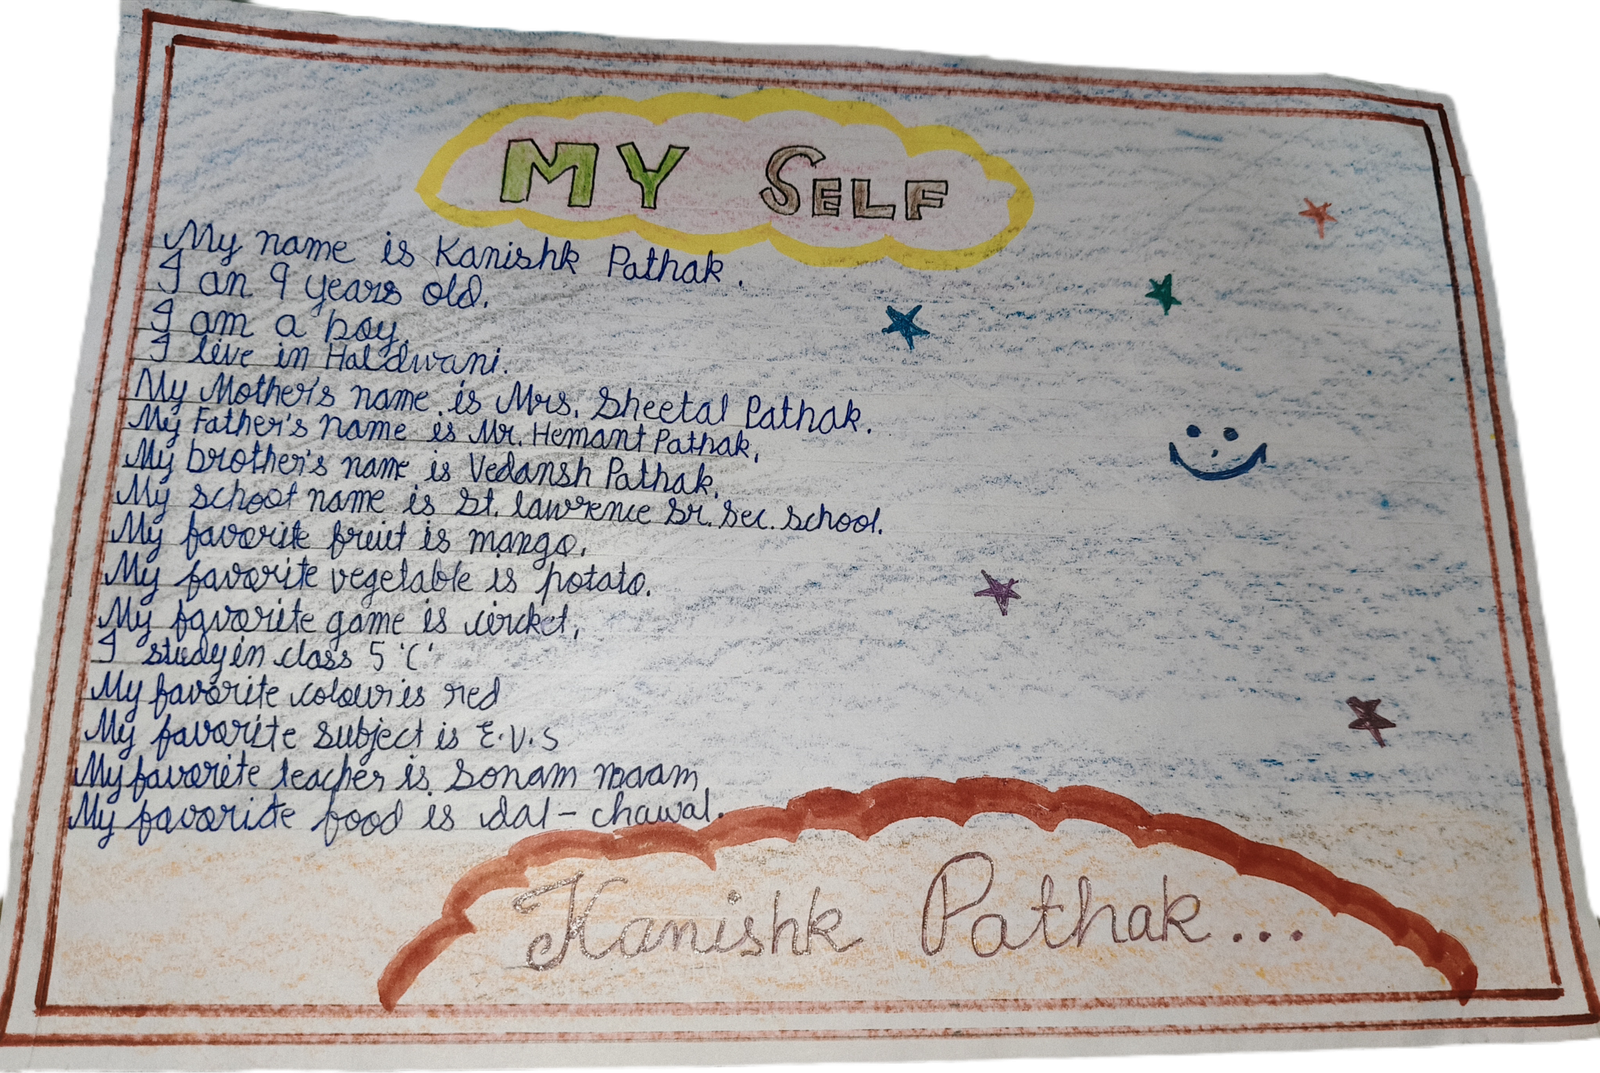 MY SELF
My name is Kanishk Pathak.
I an 9 years old.
I am a boy.
I live in Haldwani.
My Mother's name is Mrs. Sheetal Pathak.
My Father's name is Mr. Hemant Pathak.
My brother's name is Vedansh Pathak.
My school name is St. lawrence Sr. Sec. School.
My favorite fruit is mango.
My favorite vegetable is potato.
My favorite game is circket.
I study in class 5 'C'
My favorite colour is red
My favorite subject is E.V.S
My favorite teacher is Sonam maam
My favorite food is dal - chawal.
Kanishk Pathak...